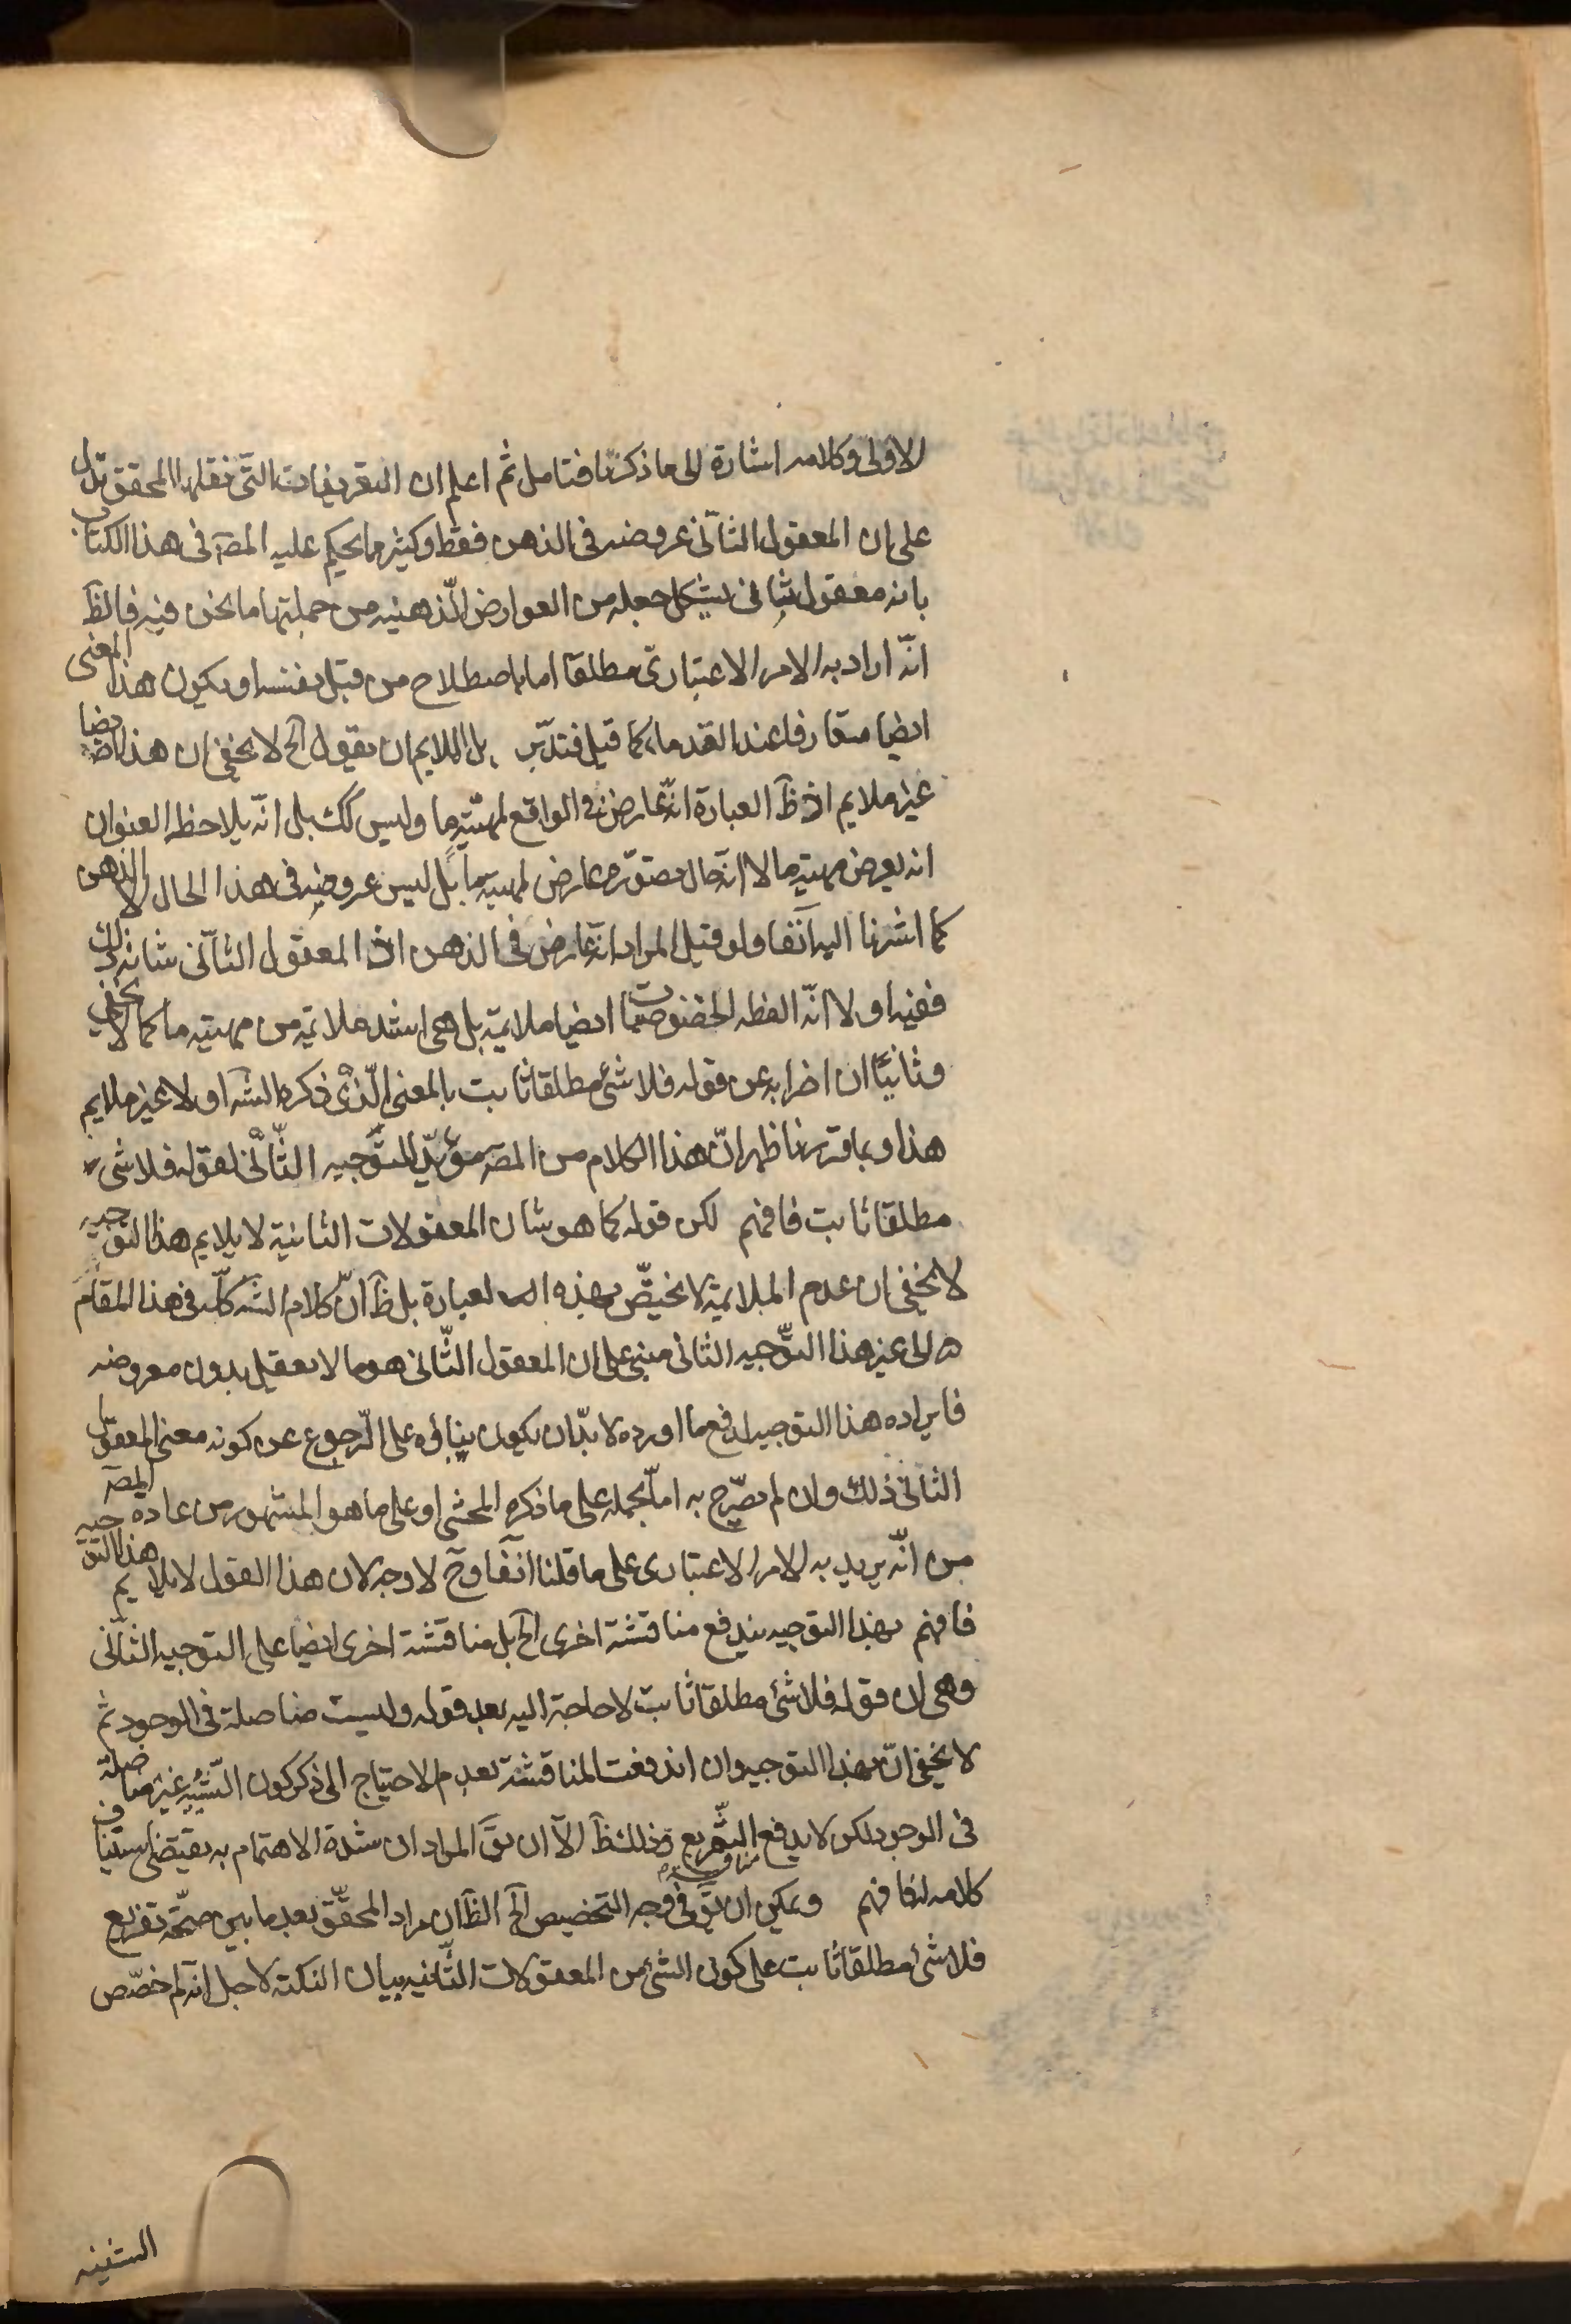 الاولى وكلامه اشارة الى ما ذكرنا فتامل ثم اعلم ان التعريفات التى نقلها المحقق تدل
على ان المعقول الثانى عروضه فى الذهن فقط وكثير ما يحكم عليه المصٓ فى هذا الكتاب
بانه معقول ثانى يشكل جعله من العوارض الذهنيه من جملتها ما نحن فيه فالظٓ
انّه اراد به الامر الاعتبارى مطلقا اما باصطلاح من قبل نفسه او يكون هذا المعنى
ايضا متعارفا عند القدماء كما قيل فتدبّر بل الملايم ان يقول الخ لا يخفى ان هذا ايضا
غير ملايم اذ ظٓ العبارة انّه عارض فى الواقع لمهيّة ما وليس كك بل انّه يلاحظ العنوان
انه يعرض مهية ما لا انّه حال تصوّره عارض لمهية ما بل ليس عروضه فى هذا الحال الا الذهن
كما اشرنا اليه آنفا ولو قيل المراد انّه عارض فى الذهن اذ المعقول الثانى شانه ذلك
ففيه اولا انّ لفظه الخصوصيات ايضا ملايمة بل هى اشد ملايمة من مهية ما كما لا يخفى
وثانيًا ان اضرابه عن قوله فلا شئ مطلقا ثابت بالمعنى الّذى ذكره الشٓ اولا غير ملايم
هذا وبما قررنا ظهر انّ هذا الكلام من المصٓ مؤيّد للتّوجيه الثّانى لقوله فلا شئ
مطلقا ثابت فافهم لكن قوله كما هو شان المعقولات الثانية لا يلايم هذا التوجيه
لا يخفى ان عدم الملايمة لا يختصّ بهذه العبارة بل ظٓ انّ كلام الشٓ كلّه فى هذا المقام
الى غير هذا التّوجيه الثانى مبنى على ان المعقول الثّانى هو ما لا يعقل بدون معروضه
فايراده هذا التوجيه لدفع ما اورده لا بدّ ان يكون بناؤه على الرّجوع عن كونه معنى المعقول
الثانى ذلك وان لم يصّرح به امّا بحمله على ما ذكره المحشى او على ما هو المشهور من عادة المصٓ
من انّه يريد به الامر الاعتبارى على ما قلنا آنفا وحٓ لا وجه لان هذا القول لا يلايم هذا التوجيه
فافهم بهذا التوجيه يندفع مناقشة اخرى الخ بل مناقشة اخرى ايضا على التوجيه الثانى
وهى ان قوله فلا شئ مطلقا ثابت لا حاجة اليه بعد قوله وليست متاصلة فى الوجود ثم
لا يخفى انّ بهذا التوجيه وان اندفعت المناقشة بعدم الاحتياج الى ذكر كون الشيئية غير متاصلة
فى الوجود لكن لا يدفع التفريع وذلك ظٓ الا ان يقٓ المراد ان شدة الاهتمام به يقتضى استيناف
كلامه له فافهم ويمكن ان يقٓ فى وجه التخصيص الخ الظٓ ان مراد المحقّق بعد ما بين صحّة تفريع
فلا شئ مطلقا ثابت على كون الشئ من المعقولات الثّانيه بيان النكتة لاجل انه لم خصّص
الشيئية